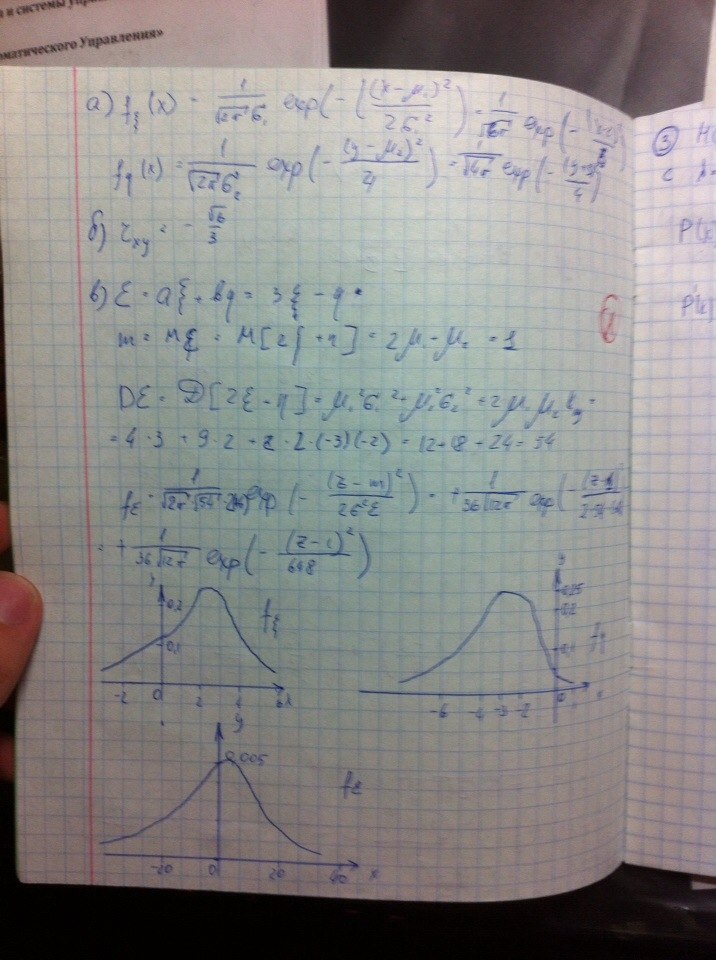 и системы упра
оматического Управления»
а) f_ξ(x) = 1/(√2π σ₁) exp(-((x-μ₁)²/2σ₁²) = 1/√6π exp(-
f_η(x) = 1/(√2π σ₂) exp(-(y-μ₂)²/4) = 1/√4π exp(-(y-3)/4)
б) r_xy = -√6/3
в) ε = aξ + bη = 3ξ - η
m = Mε = M[2ξ + η] = 2μ₁ - μ₂ = 1
Dε = D[2ξ - η] = μ₁²σ₁² + μ₂²σ₂² + 2μ₁μ₂k_xy =
= 4·3 + 9·2 + 2·2·(-3)(-2) = 12+18+24 = 54
f_ε = 1/(√2π·√54 exp(-(z-m)²/2σ²ε) = + 1/36√12π exp(-(z-1)²
= + 1/36√12π exp(-(z-1)²/648)
0,2
0,1
-2 0 2 4 6 x
f_ξ
y
0,25
0,2
0,1
-6 -4 -3 -2 0 x
f_η
y
0,005
-20 0 20 40 x
f_ε
③ Н
с
P(x
P(